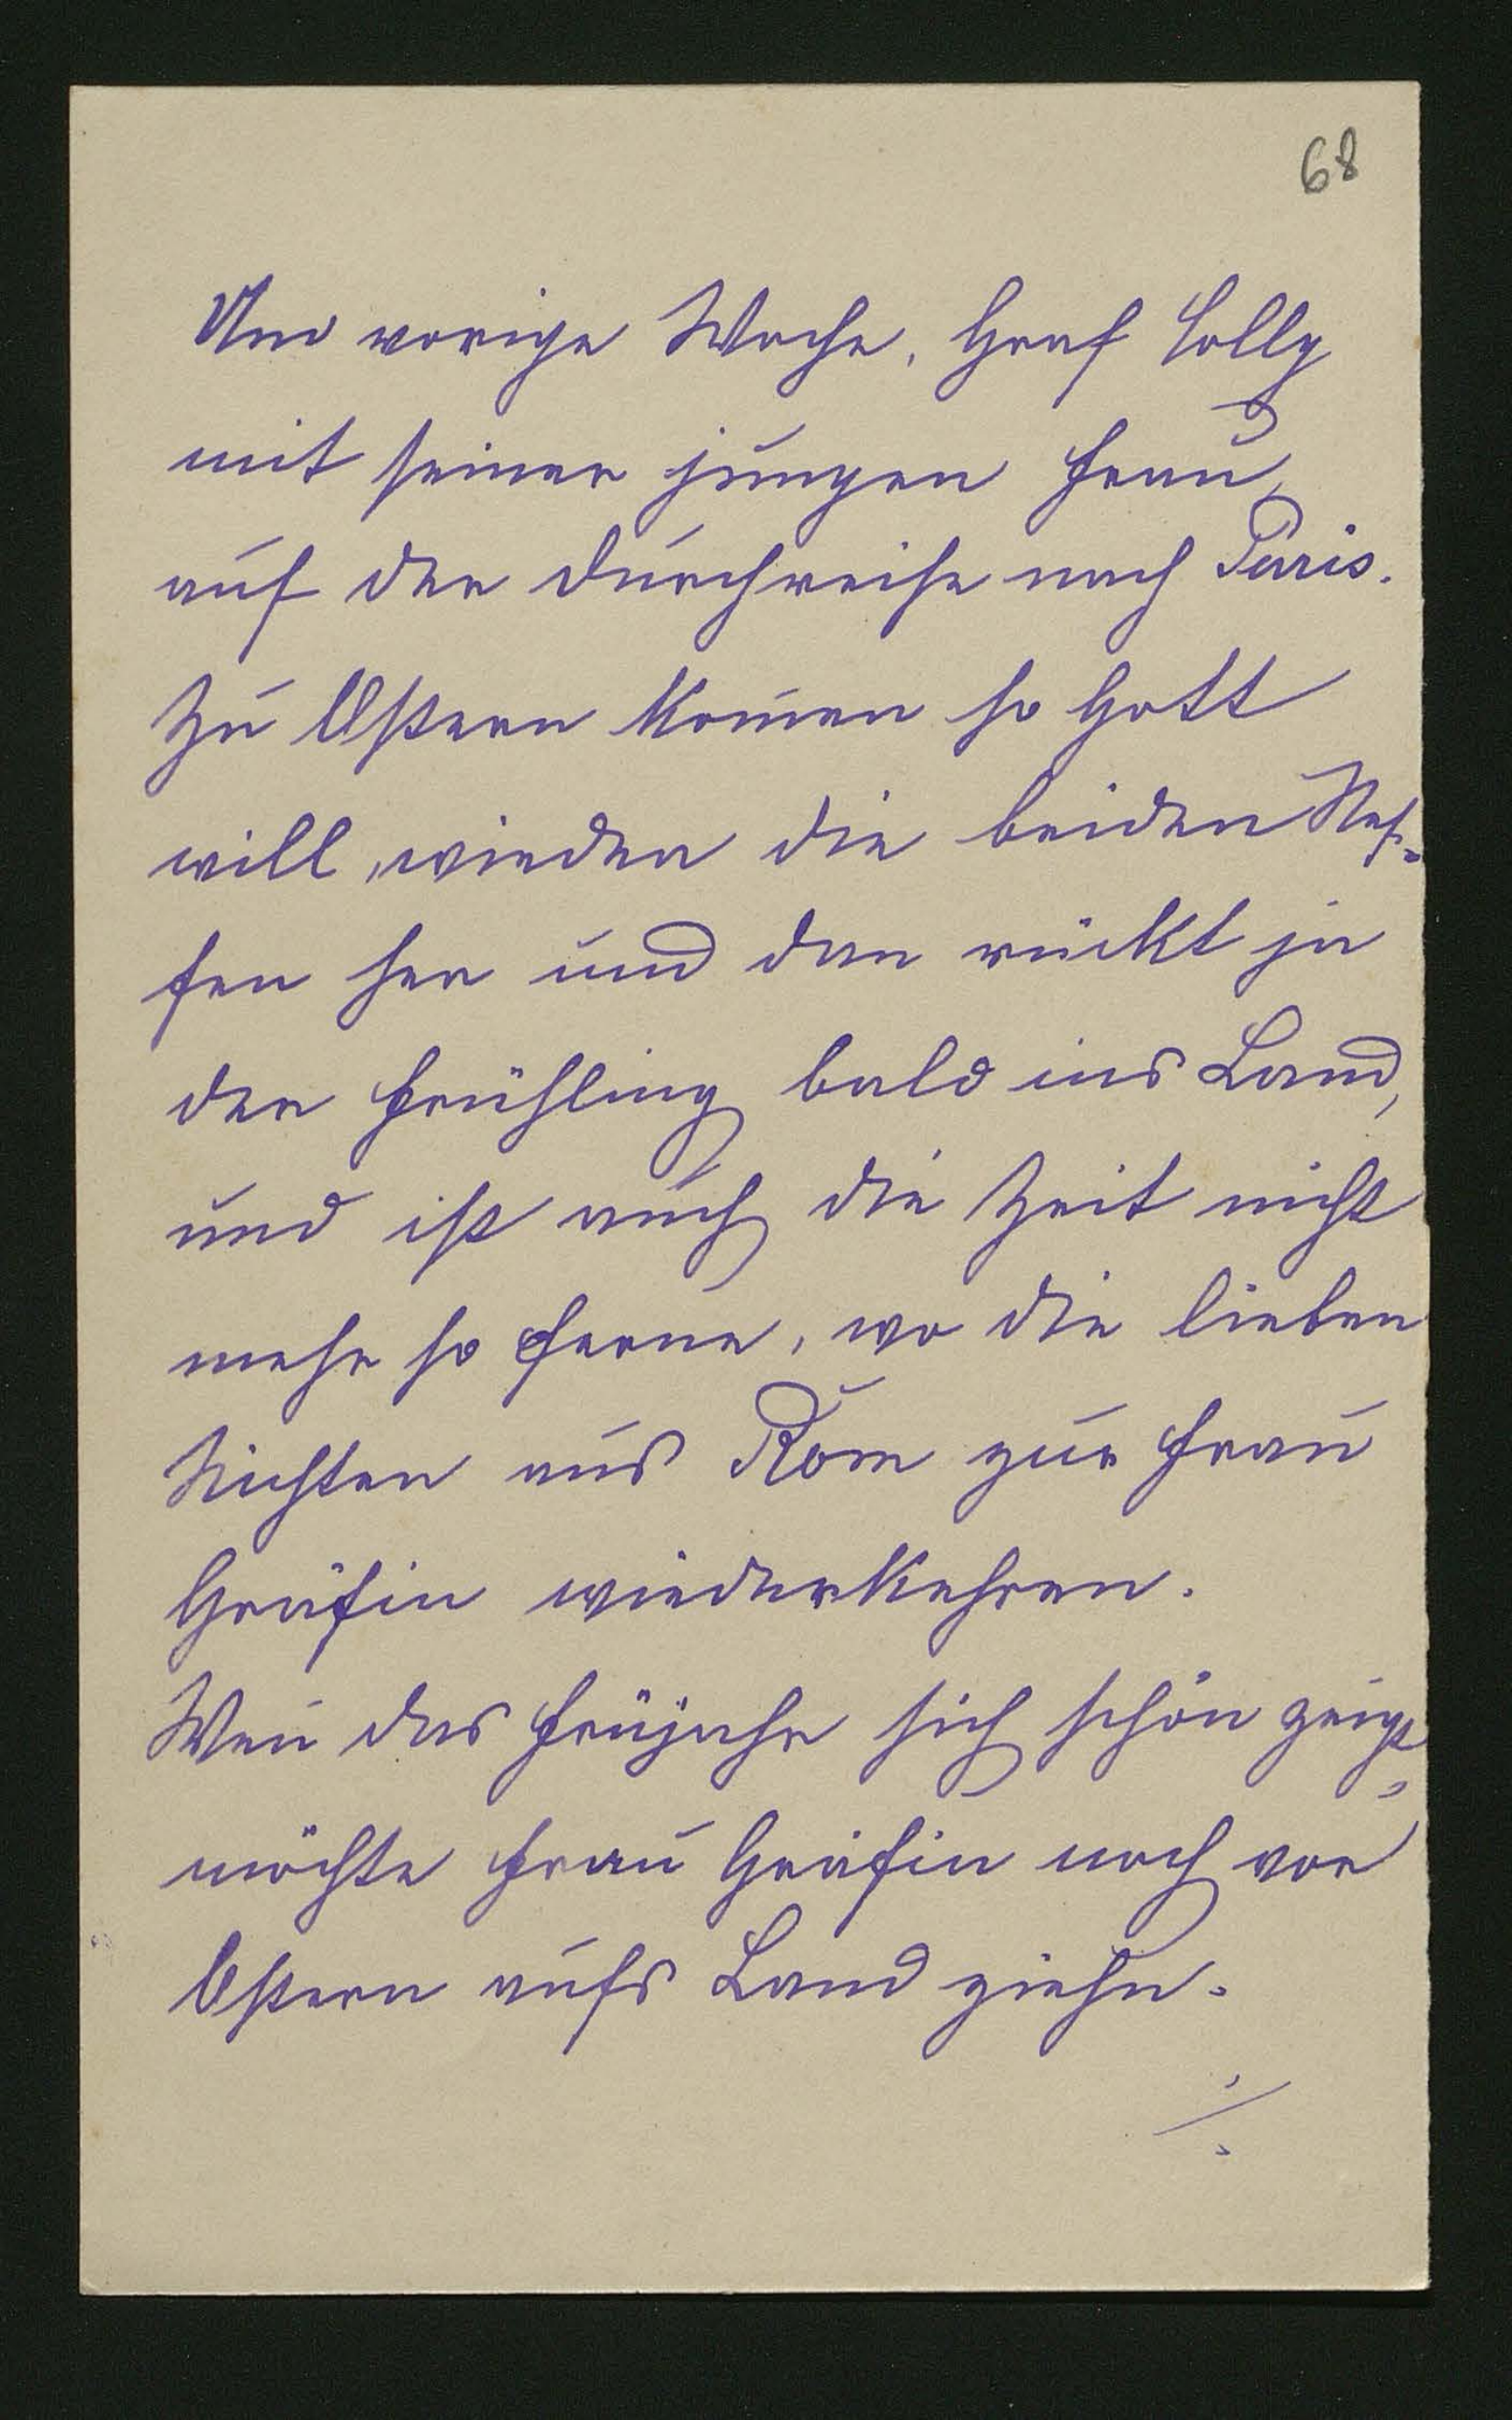 68
Und vorige Woche, Graf Colly
mit seiner jungen Frau,
auf der Durchreise nach Paris.
Zu Ostern kom̅en so Gott
will, wieder die beiden Nef-
fen her und dan rückt ja
der Frühling bald ins Land,
und ist auch die Zeit nicht
mehr so ferne, wo die lieben
Nichten aus Rom zur Frau
Gräfin wiederkehren.
Wen̅ das Früjahr sich schön zeigt,
möchte Frau Gräfin noch vor
Ostern aufs Land ziehn.
./.